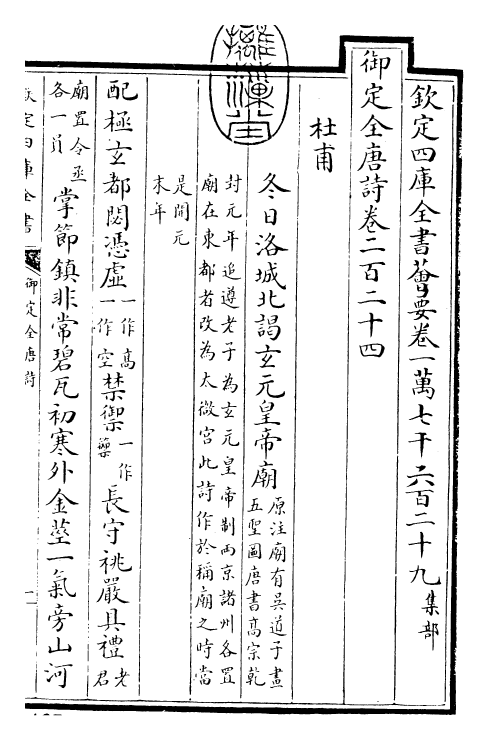 欽定四庫全書薈要卷一萬七千六百二十九集部
御定全唐詩卷二百二十四
杜甫
冬日洛城北謁玄元皇帝廟原注廟有吳道子畫
五聖圖唐書高宗乾
封元年追遵老子為玄元皇帝制兩京諸州各置
廟在東都者改為太微宫此詩作於稱廟之時當
是開元
末年
配極玄都閟憑虛一作高
一作空禁禦一作
籞長守祧嚴具禮老
君
廟置令丞
各一員掌節鎮非常碧瓦初寒外金莖一氣旁山河
欽定四庫全書
御定全唐詩
一